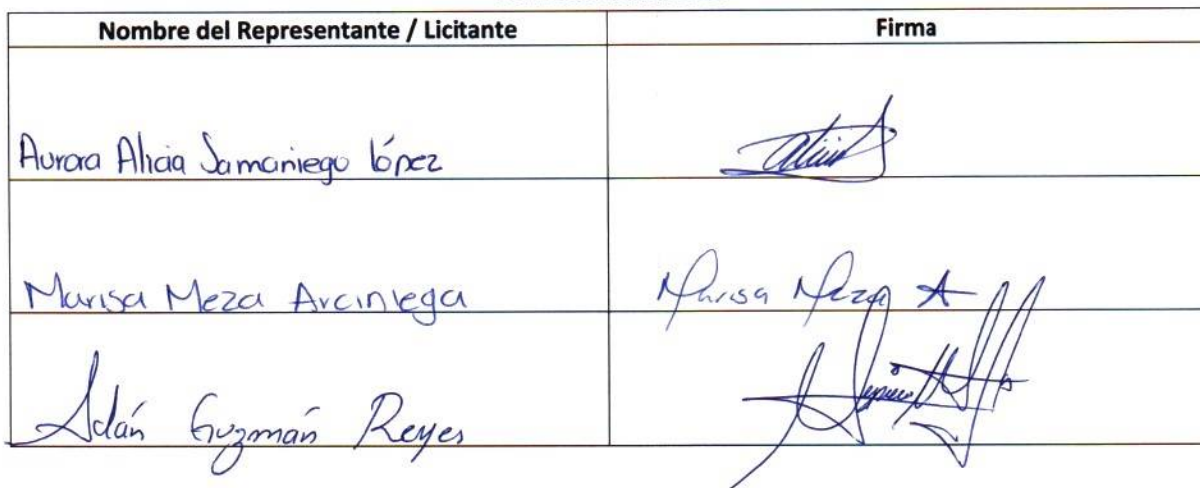 Nombre del Representante / Licitante Firma
Aurora Alicia Samaniego López
Marisa Meza Arciniega Marisa Meza A
Adán Guzmán Reyes